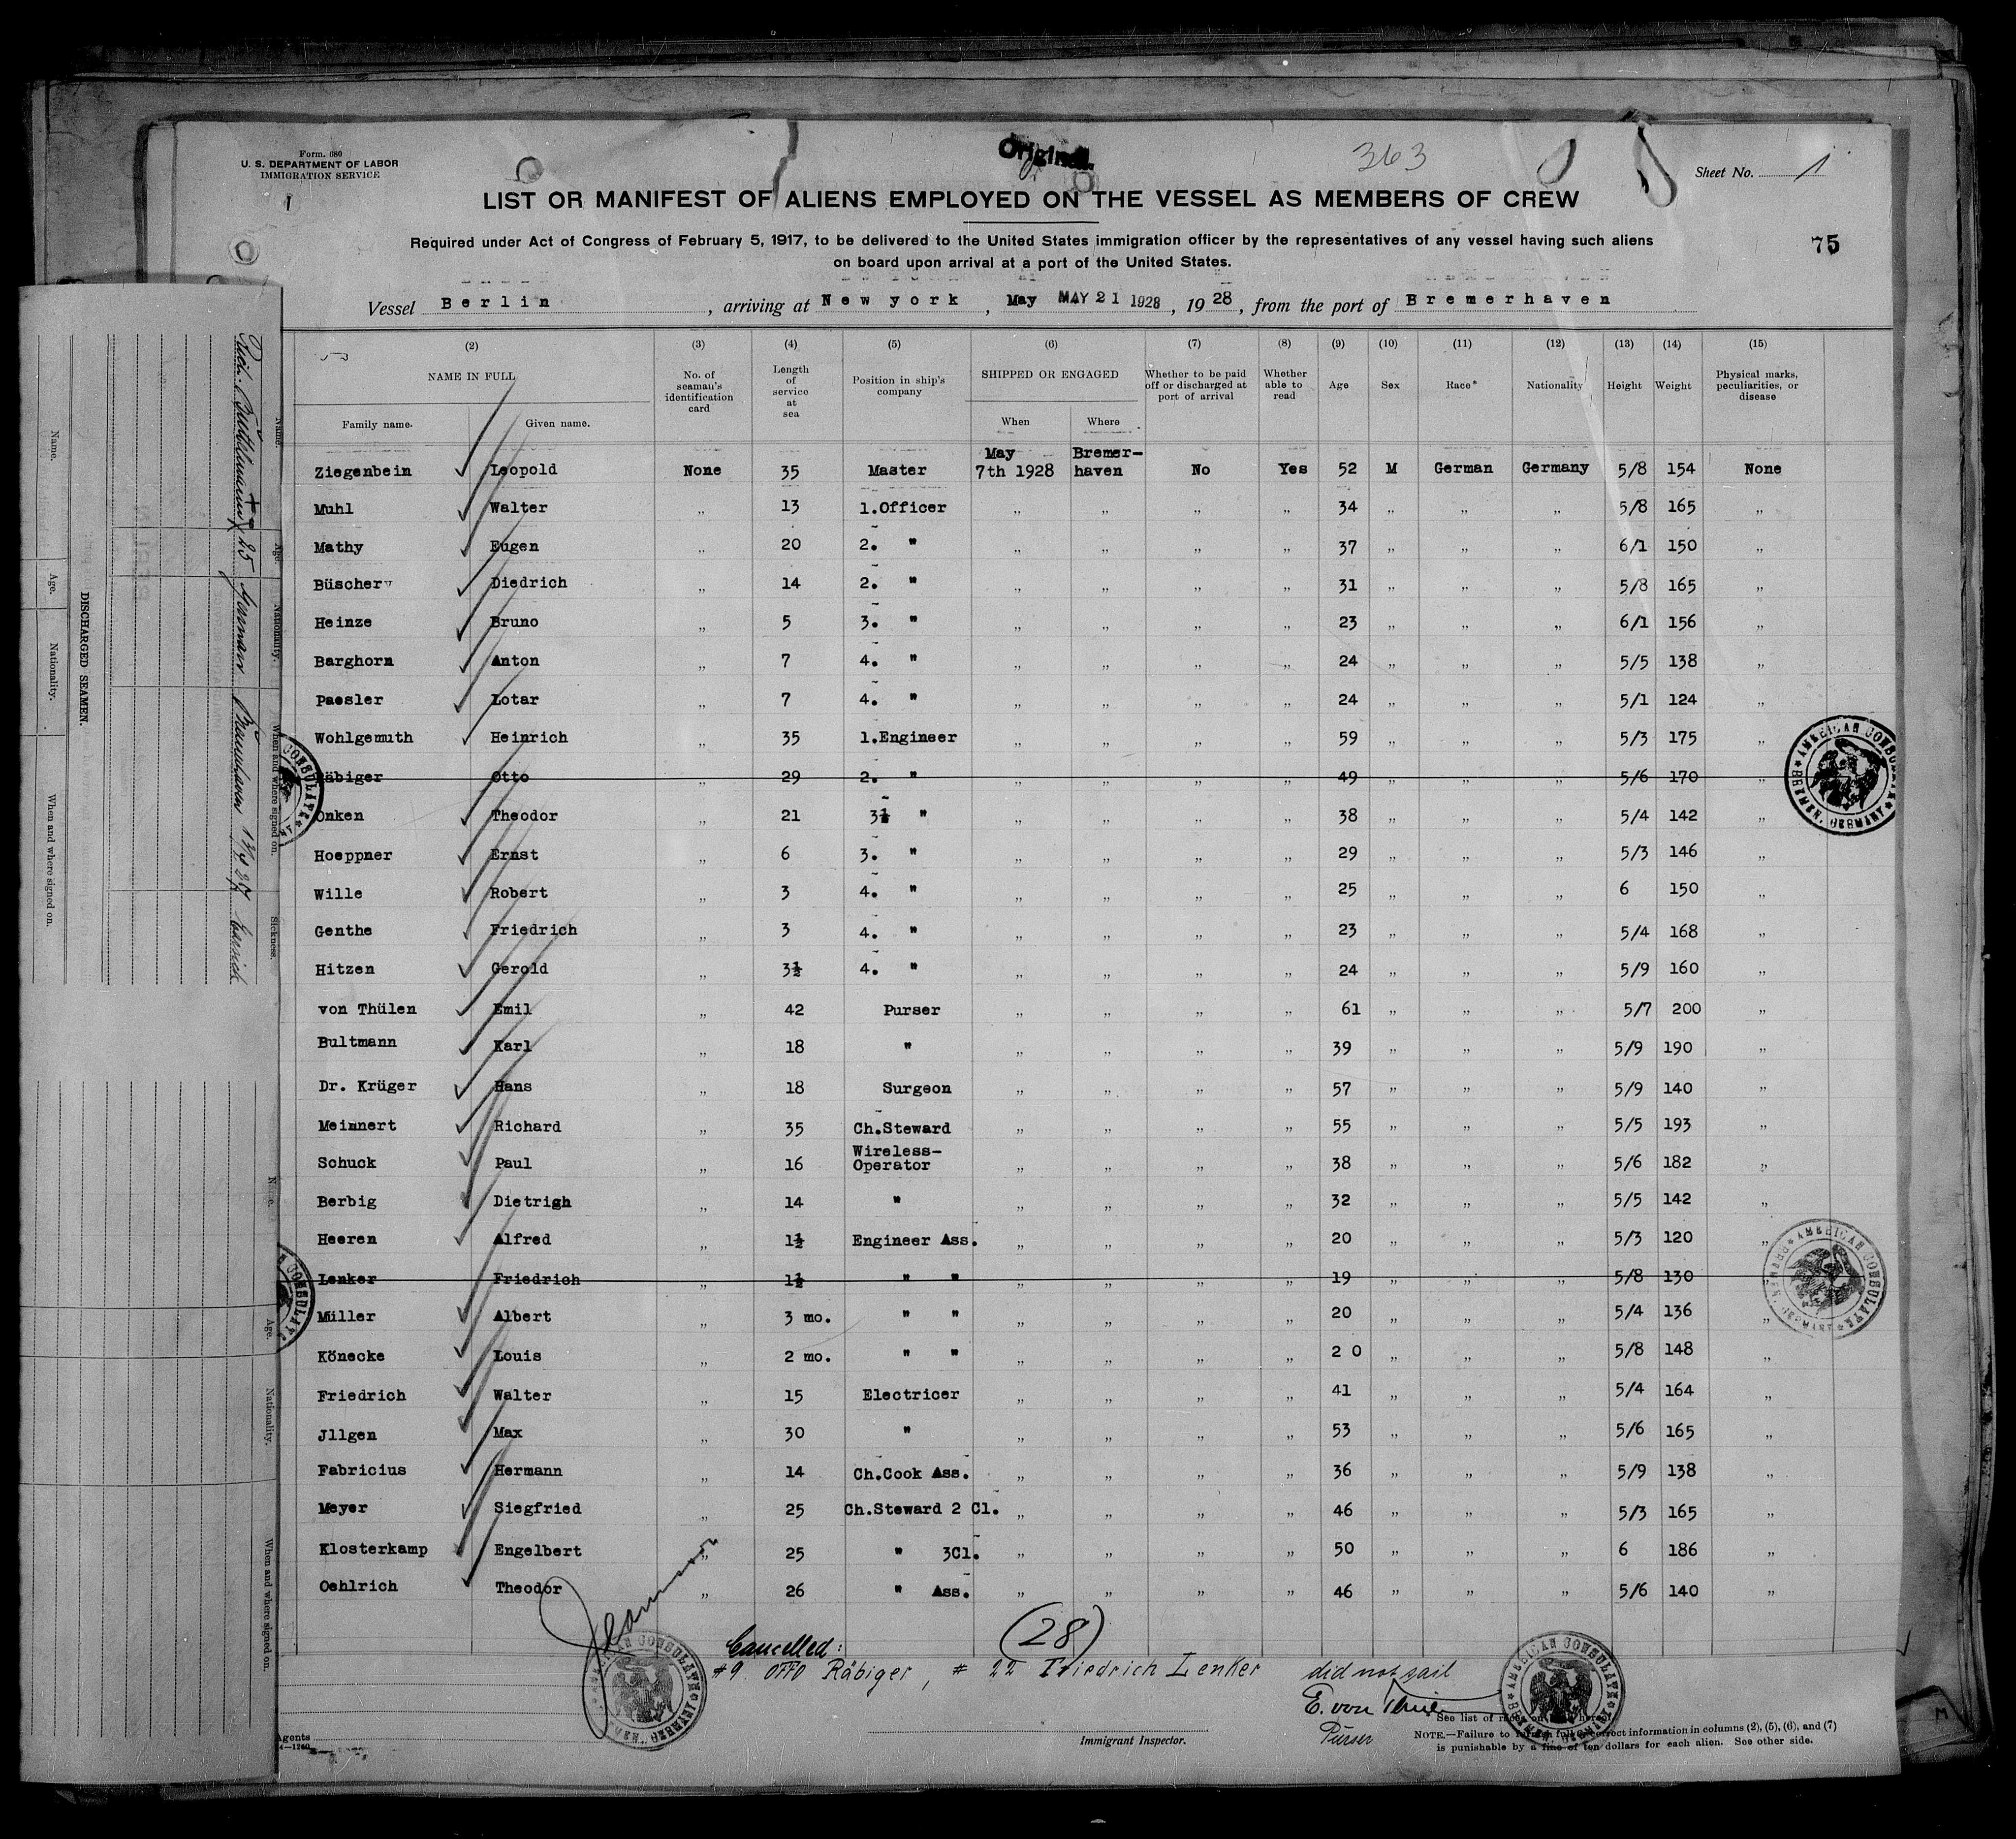 Form. 680
U. S. DEPARTMENT OF LABOR
IMMIGRATION SERVICE
Original.
363
Sheet No. 1
LIST OR MANIFEST OF ALIENS EMPLOYED ON THE VESSEL AS MEMBERS OF CREW
Required under Act of Congress of February 5, 1917, to be delivered to the United States immigration officer by the representatives of any vessel having such aliens
on board upon arrival at a port of the United States.
75
Vessel Berlin, arriving at New york, May MAY 21 1928, 1928, from the port of Bremerhaven
(2) (3) (4) (5) (6) (7) (8) (9) (10) (11) (12) (13) (14) (15)
NAME IN FULL No. of seaman's identification card Length of service at sea Position in ship's company SHIPPED OR ENGAGED Whether to be paid off or discharged at port of arrival Whether able to read Age Sex Race* Nationality Height Weight Physical marks, peculiarities, or disease
Family name. Given name. When Where
Ziegenbein Leopold None 35 Master May 7th 1928 Bremer-haven No Yes 52 M German Germany 5/8 154 None
Muhl Walter „ 13 1.Officer „ „ „ „ 34 „ „ „ 5/8 165 „
Mathy Eugen „ 20 2. " „ „ „ „ 37 „ „ „ 6/1 150 „
Büscher Diedrich „ 14 2. " „ „ „ „ 31 „ „ „ 5/8 165 „
Heinze Bruno „ 5 3. " „ „ „ „ 23 „ „ „ 6/1 156 „
Barghorn Anton „ 7 4. " „ „ „ „ 24 „ „ „ 5/5 138 „
Paesler Lotar „ 7 4. " „ „ „ „ 24 „ „ „ 5/1 124 „
Wohlgemuth Heinrich „ 35 1.Engineer „ „ „ „ 59 „ „ „ 5/3 175 „
Räbiger Otto „ 29 2. " „ „ „ „ 49 „ „ „ 5/6 170 „
Onken Theodor „ 21 3½ " „ „ „ „ 38 „ „ „ 5/4 142 „
Hoeppner Ernst „ 6 3. " „ „ „ „ 29 „ „ „ 5/3 146 „
Wille Robert „ 3 4. " „ „ „ „ 25 „ „ „ 6 150 „
Genthe Friedrich „ 3 4. " „ „ „ „ 23 „ „ „ 5/4 168 „
Hitzen Gerold „ 3½ 4. " „ „ „ „ 24 „ „ „ 5/9 160 „
von Thülen Emil „ 42 Purser „ „ „ „ 61 „ „ „ 5/7 200 „
Bultmann Karl „ 18 " „ „ „ „ 39 „ „ „ 5/9 190 „
Dr. Krüger Hans „ 18 Surgeon „ „ „ „ 57 „ „ „ 5/9 140 „
Meinnert Richard „ 35 Ch.Steward „ „ „ „ 55 „ „ „ 5/5 193 „
Schuck Paul „ 16 Wireless-Operator „ „ „ „ 38 „ „ „ 5/6 182 „
Berbig Dietrigh „ 14 " „ „ „ „ 32 „ „ „ 5/5 142 „
Heeren Alfred „ 1½ Engineer Ass. „ „ „ „ 20 „ „ „ 5/3 120 „
Lenker Friedrich „ 1½ " " „ „ „ „ 19 „ „ „ 5/8 130 „
Müller Albert „ 3 mo. " " „ „ „ „ 20 „ „ „ 5/4 136 „
Könecke Louis „ 2 mo. " " „ „ „ „ 2 0 „ „ „ 5/8 148 „
Friedrich Walter „ 15 Electricer „ „ „ „ 41 „ „ „ 5/4 164 „
Jllgen Max „ 30 " „ „ „ „ 53 „ „ „ 5/6 165 „
Fabricius Hermann „ 14 Ch.Cook Ass. „ „ „ „ 36 „ „ „ 5/9 138 „
Meyer Siegfried „ 25 Ch.Steward 2 Cl. „ „ „ „ 46 „ „ „ 5/3 165 „
Klosterkamp Engelbert „ 25 " 3Cl. „ „ „ „ 50 „ „ „ 6 186 „
Oehlrich Theodor „ 26 " Ass. „ „ „ „ 46 „ „ „ 5/6 140 „
(28)
Cancelled:
#9 OTTO Räbiger, # 22 Friedrich Lenker did not sail
E. von
Purser
Immigrant Inspector.
See list of races on
NOTE.—Failure to furnish full or correct information in columns (2), (5), (6), and (7)
is punishable by a fine of ten dollars for each alien. See other side.
Agents
AMERICAN CONSULATE
BREMEN, GERMANY
AMERICAN CONSULATE
BREMEN, GERMANY
AMERICAN CONSULATE
BREMEN, GERMANY
AMERICAN CONSULATE
BREMEN, GERMANY
DISCHARGED SEAMEN.
Name. Age. Nationality. When and where signed on.
Name. Age. Nationality. When and where signed on. Sickness.
25 German Bremerhaven
Name. Age. Nationality. When and where signed on.
M